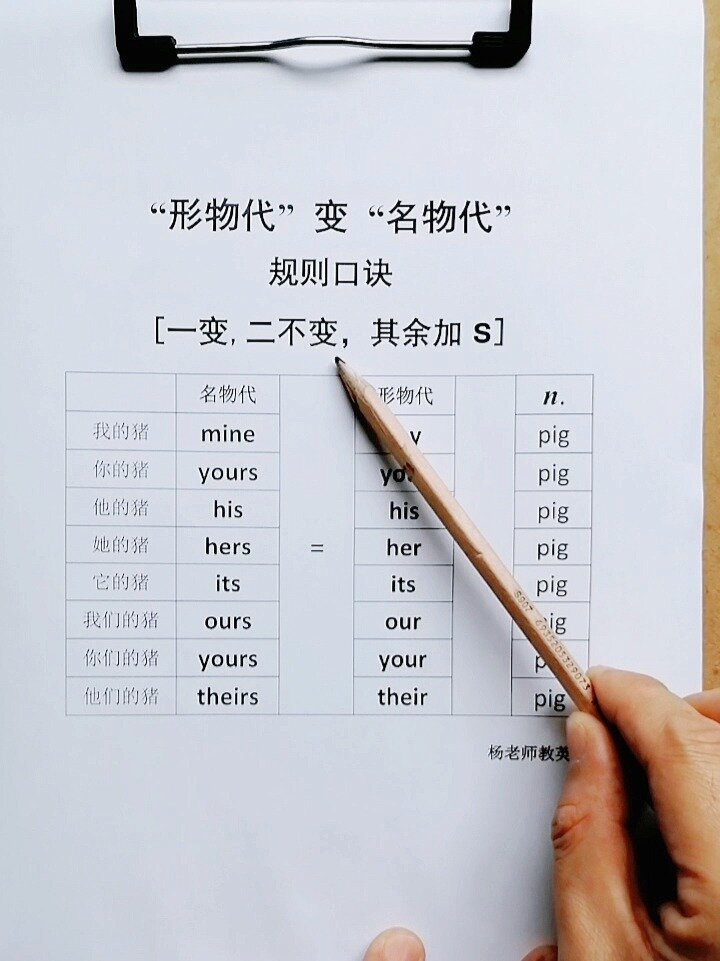 “形物代” 变 “名物代”
规则口诀
[一变, 二不变，其余加 S]
名物代 形物代 n.
我的猪 mine pig
你的猪 yours pig
他的猪 his his pig
她的猪 hers = her pig
它的猪 its its pig
我们的猪 ours our
你们的猪 yours your
他们的猪 theirs their pig
杨老师教英